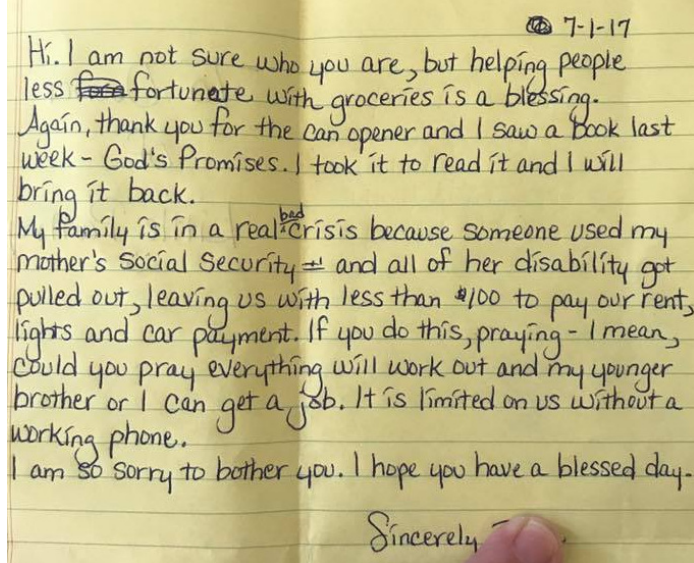 7-1-17
Hi. I am not sure who you are, but helping people
less fortunate with groceries is a blessing.
Again, thank you for the can opener and I saw a book last
week - God's Promises. I took it to read it and I will
bring it back.
My family is in a real bad crisis because someone used my
mother's Social Security # and all of her disability got
pulled out, leaving us with less than $100 to pay our rent,
lights and car payment. If you do this, praying - I mean,
could you pray everything will work out and my younger
brother or I can get a job. It is limited on us without a
working phone.
I am so sorry to bother you. I hope you have a blessed day.
Sincerely